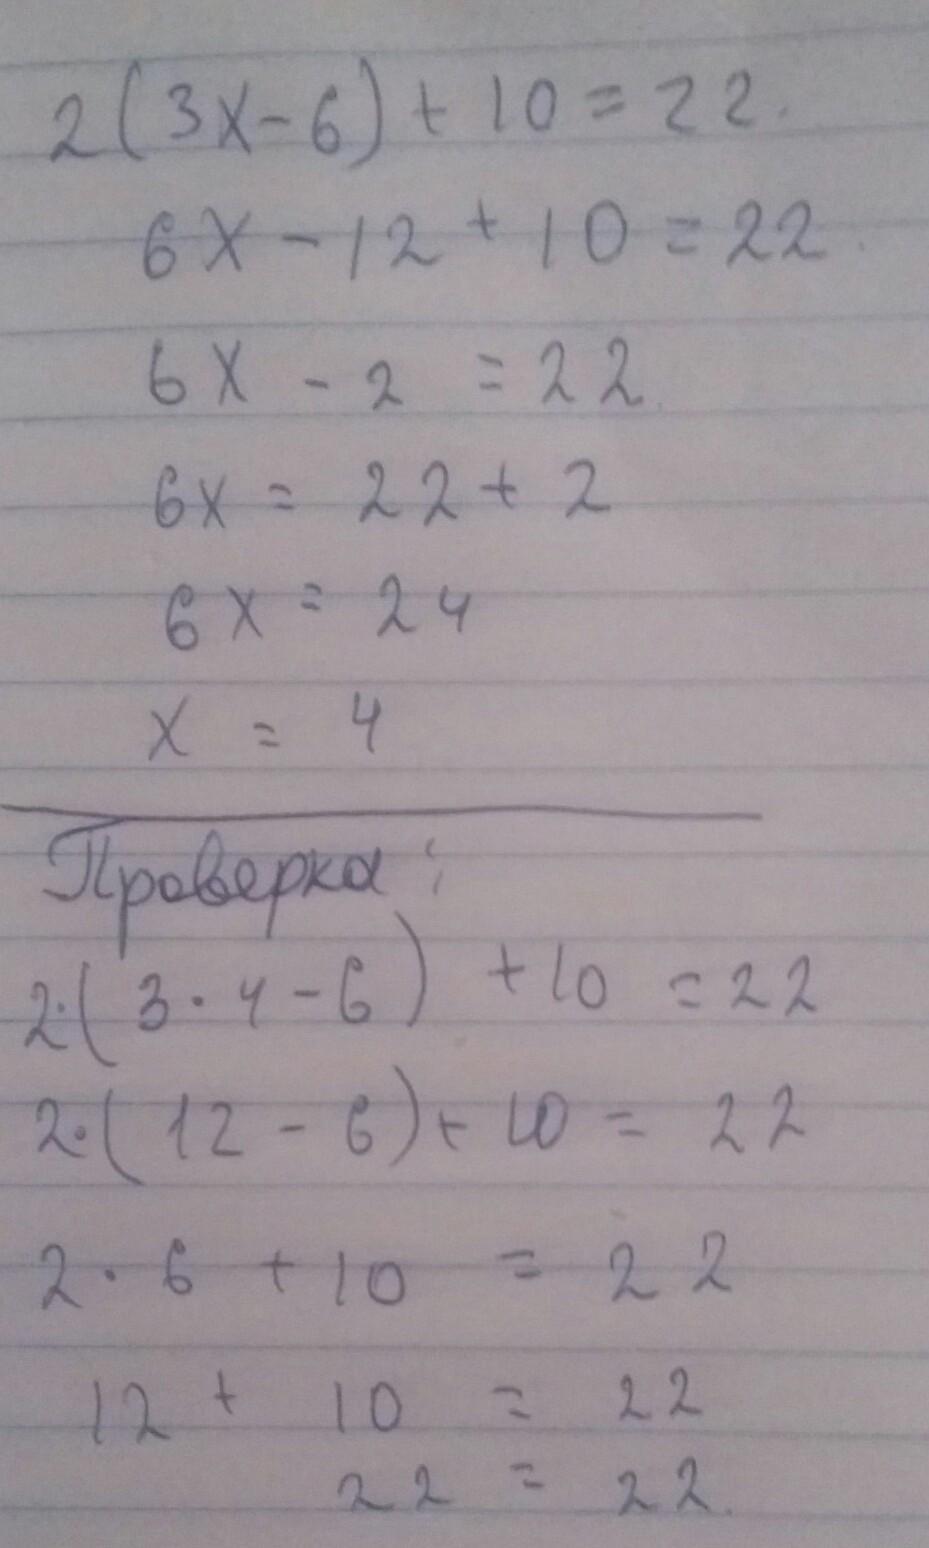 2(3x-6)+10=22.
6x-12+10=22.
6x-2=22.
6x=22+2
6x=24
x=4
Проверка:
2·(3·4-6)+10=22
2·(12-6)+10=22
2·6+10=22
12+10=22
22=22.